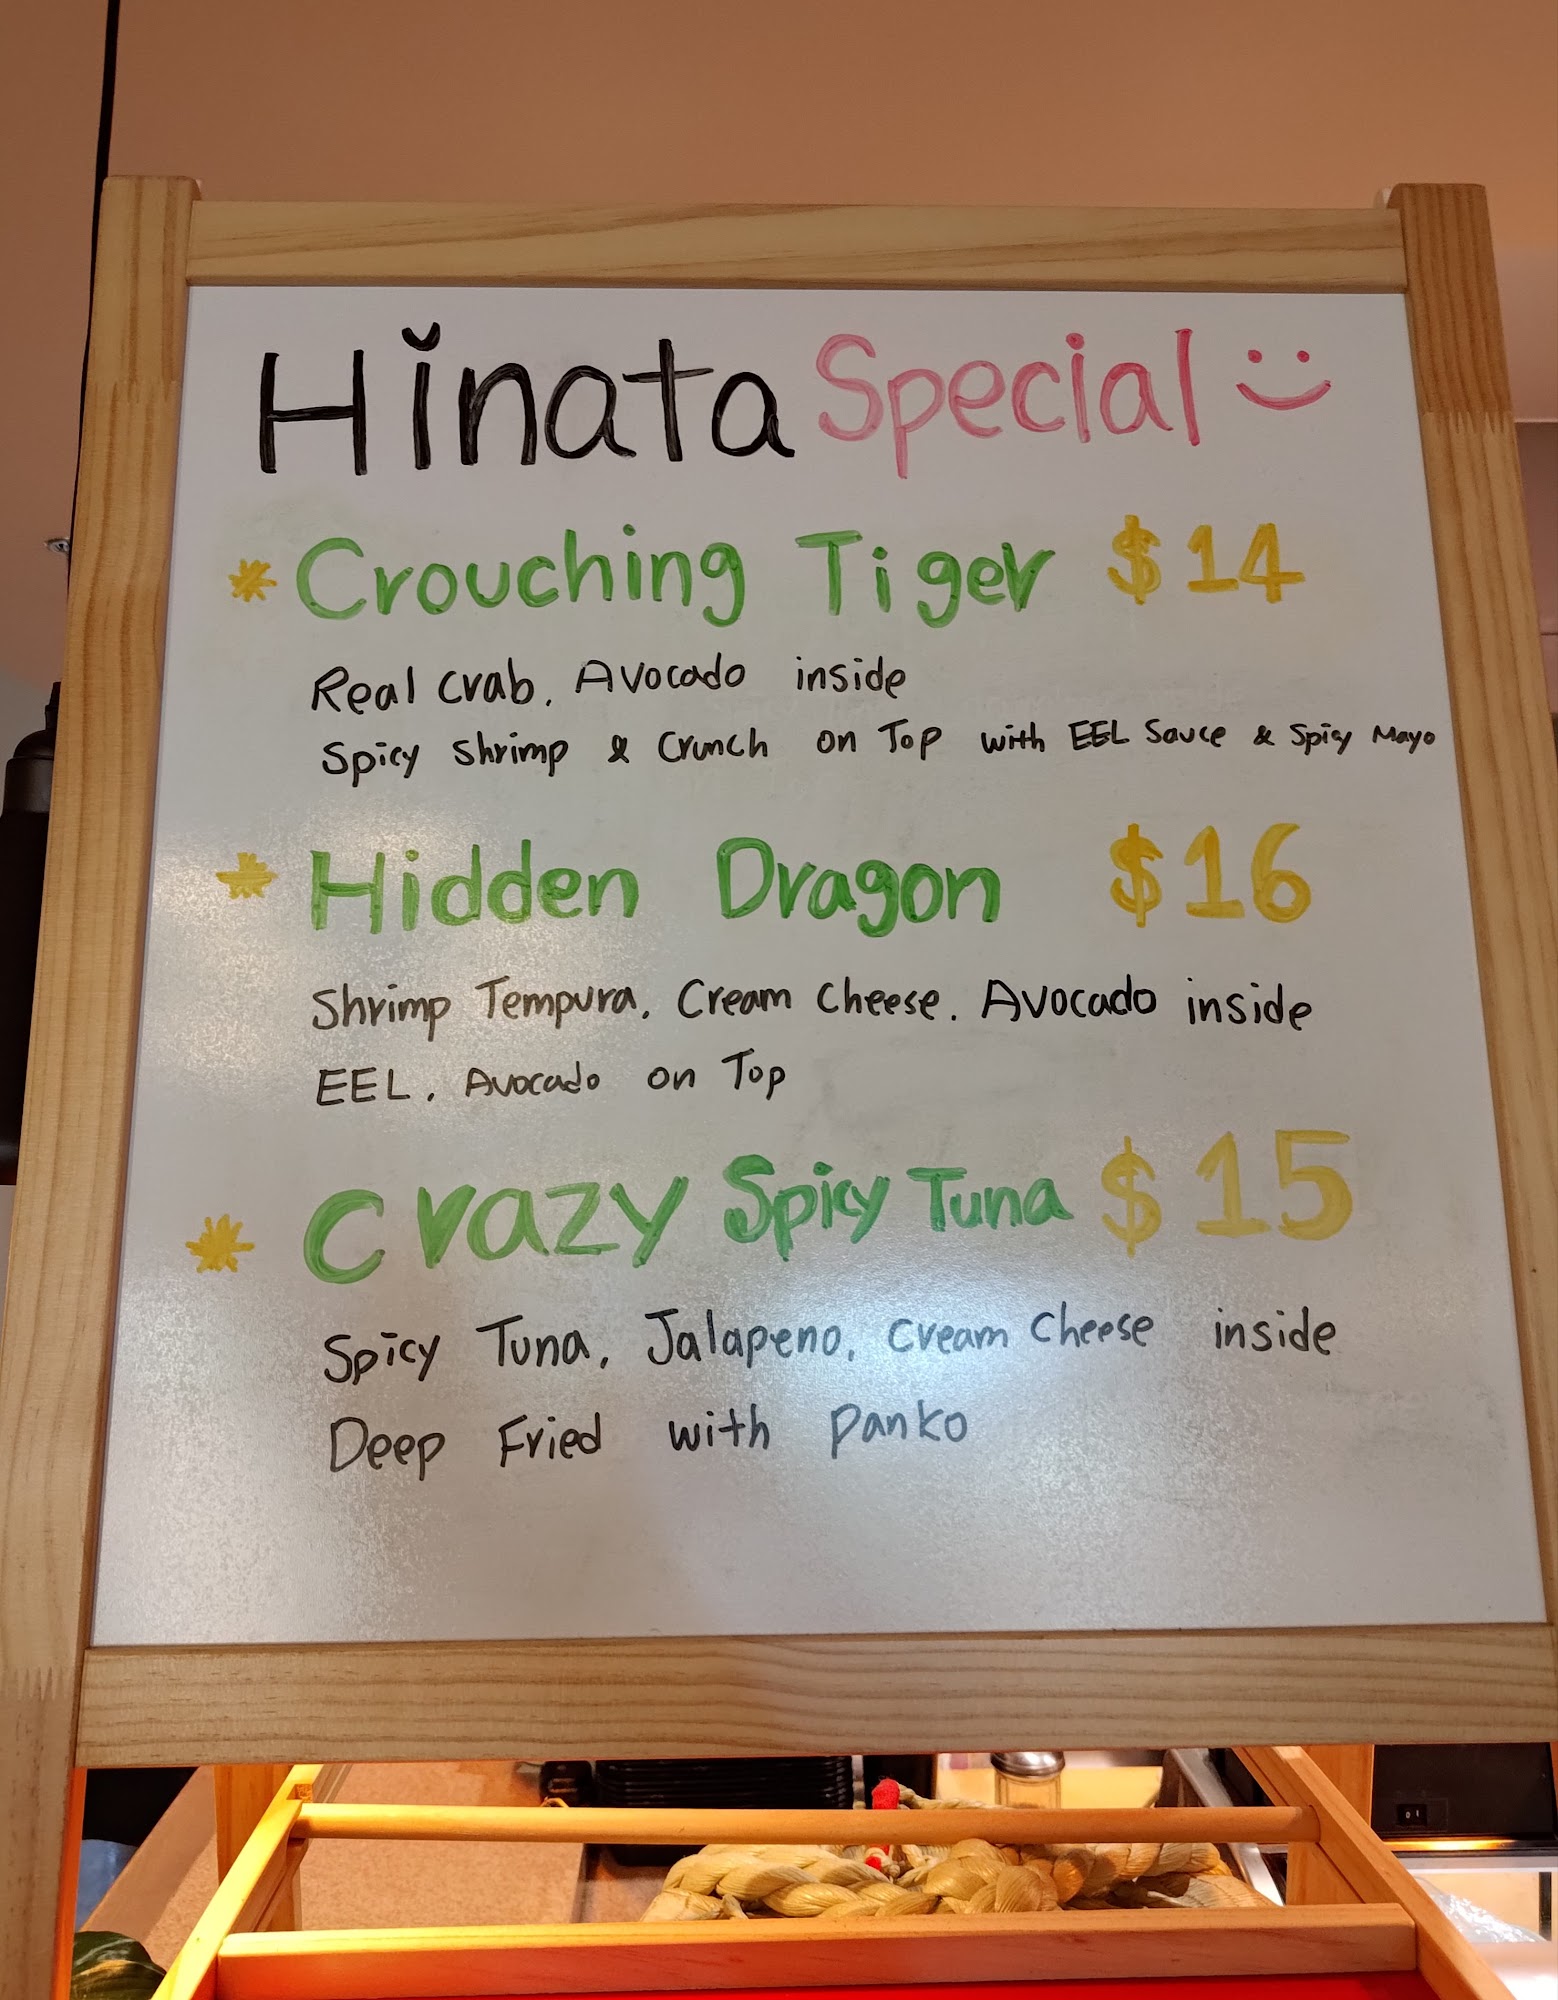 Hinata Special
Crouching Tiger $14
Real Crab, Avocado inside
Spicy Shrimp & Crunch on Top with EEL Sauce & Spicy Mayo
Hidden Dragon $16
Shrimp Tempura, Cream Cheese, Avocado inside
EEL, Avocado on Top
Crazy Spicy Tuna $15
Spicy Tuna, Jalapeno, Cream Cheese inside
Deep Fried with Panko